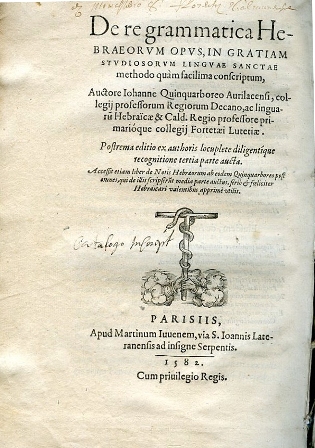 De re grammatica He-
BRAEORVM OPVS, IN GRATIAM
STVDIOSORVM LINGVAE SANCTAE
methodo quàm facilima conscriptum,
Auctore Iohanne Quinquarboreo Aurilacensi, col-
legij professorum Regiorum Decano, ac lingua-
rū Hebraïcæ & Cald. Regio professore pri-
marióque collegij Fortetæi Lutetiæ.
Postrema editio ex authoris locuplete diligentíque
recognitione tertia parte aucta.
Accessit etiam liber de Notis Hebræorum ab eodem Quinquarboreo post
omnes, qui de iis scripserūt media parte auctus, seriò & fœliciter
Hebraïcari valentibus apprimè vtilis.
Catalogo inscript
PARISIIS,
Apud Martinum Iuuenem, via S. Ioannis Late-
ranensis ad insigne Serpentis.
1582.
Cum priuilegio Regis.